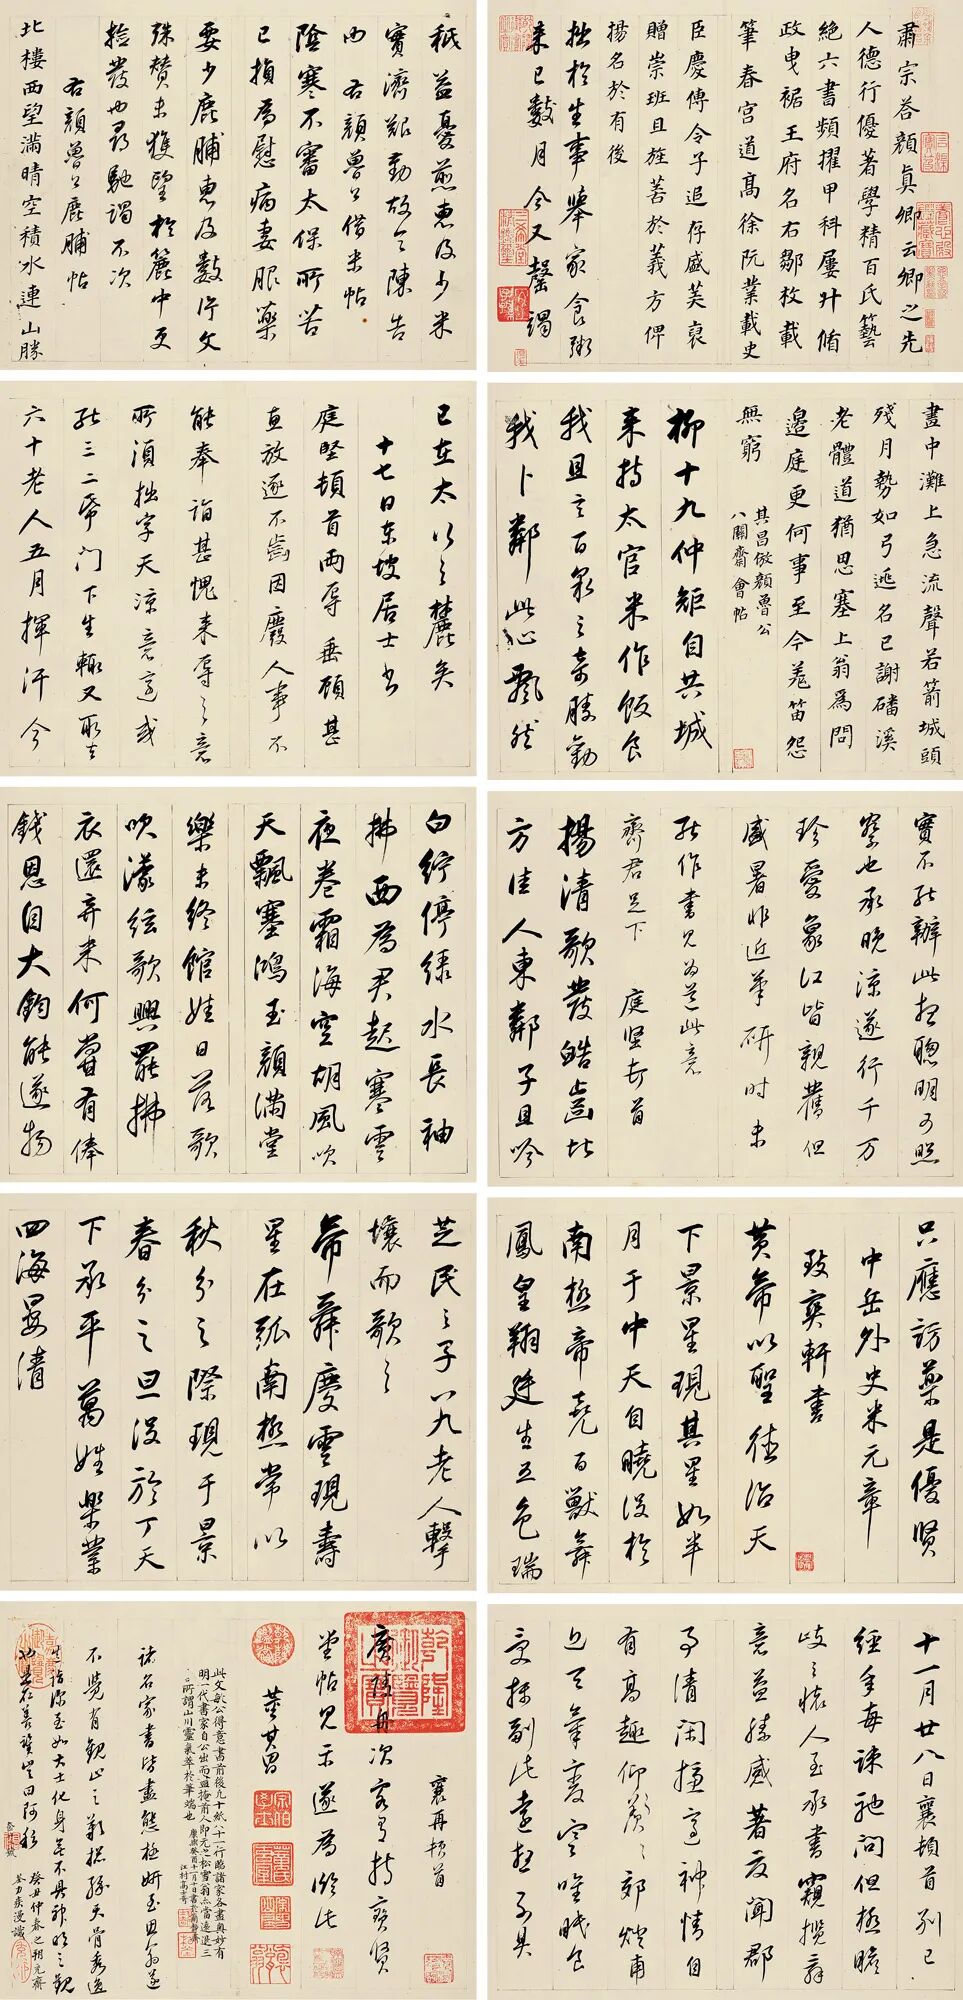 肅宗答顏真卿云卿之先
人德行優著學精百氏藝
絕六書頻擢甲科屢升脩
政曳裾王府名右鄒枚載
筆春宮道高徐阮業載史
臣慶傳令子追存盛美裒
贈崇班且旌善於義方俾
揚名於有後
拙於生事舉家食粥
來已數月今又罄竭
秖益憂煎惠及少米
實濟艱勤故令陳告
内 右顏魯公借米帖
陰寒不審太保所苦
已損為慰病妻服藥
要少鹿脯惠及數片文
殊贊未獲望於簏中更
撿發也尋馳謁不次
右顏魯公鹿脯帖
北樓西望滿晴空積水連山勝
畫中灘上急流聲若箭城頭
殘月勢如弓逃名已謝磻溪
老體道猶思塞上翁為問
邊庭更何事至今羌笛怨
無窮
其昌倣顏魯公
八關齋會帖
柳十九仲矩自共城
來持太官米作飯食
我且言百泉之奇勝勸
我卜鄰此心飄然
已在太行之麓矣
十七日東坡居士書
庭堅頓首兩辱垂顧甚
直放逐不齒因廢人事不
能奉詣甚愧來辱之意
所須拙字天涼意適或
能三二紙門下生輒又取去
六十老人五月揮汗今
實不能辦此想聰明可照
察也承晚涼遂行千万
珍愛象江皆親舊但
盛暑非近筆研時未
能作書見為道此意
齊君足下 庭堅頓首
揚清歌發皓齒北
方佳人東鄰子且吟
白紵停綠水長袖
拂面為君起寒雲
夜卷霜海空胡風吹
天飄塞鴻玉顏滿堂
樂未終館娃日落歌
吹濛弦歌興罷拂
衣還弃米何嘗有俸
錢恩自大鈞能遂物
只應訪藥是優賢
中岳外史米元章
致爽軒書
黄帝以聖德治天
下景星現其星如半
月于中天自曉沒於
南極帝堯百獸舜
鳳皇翔廷生五色瑞
芝民之子八九老人擊
壤而歌之
帝舜慶雲現壽
星在弧南極常以
秋分之際現于景
春分之旦沒於丁天
下承平萬姓樂業
四海晏清
十一月廿八日襄頓首別已
經年每疎馳問但極瞻
跂之懷人至承書竊攬辭
意益臻感著及聞郡
事清閑擁高神情自
有高趣仰羨之郊煙甫
近天氣變寒唯眠食
襄再頓首
廣陵舟次客有持寶賢
堂帖見示遂為臨此
董其昌
此文敏公得意書前後九十紙八十一行臨諸家各盡奥妙有
明一代書家自公出而直掩前人即元之松雪翁亦當退避三
所謂山川靈氣萃於筆端也
諸名家書皆盡態極妍至思翁遂
不覺有觀止之歎